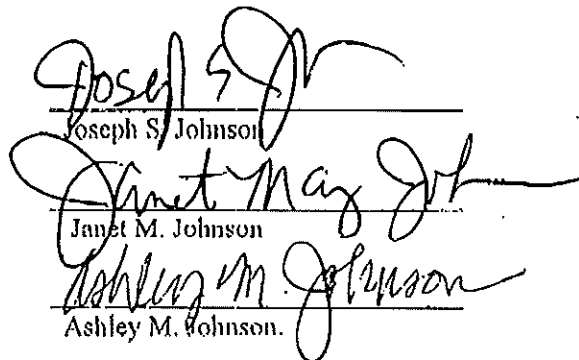 Joseph S Jo
Joseph S. Johnson
Janet May Joh
Janet M. Johnson
Ashley M. Johnson
Ashley M. Johnson.